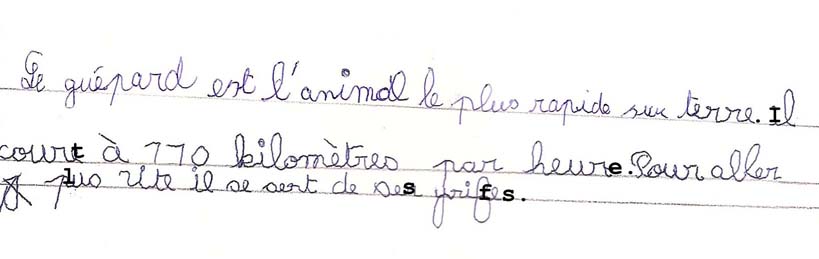 Le guépard est l'animal le plus rapide sur terre. Il
court à 110 kilomètres par heure. Pour aller
plus vite il se sert de ses grifes.